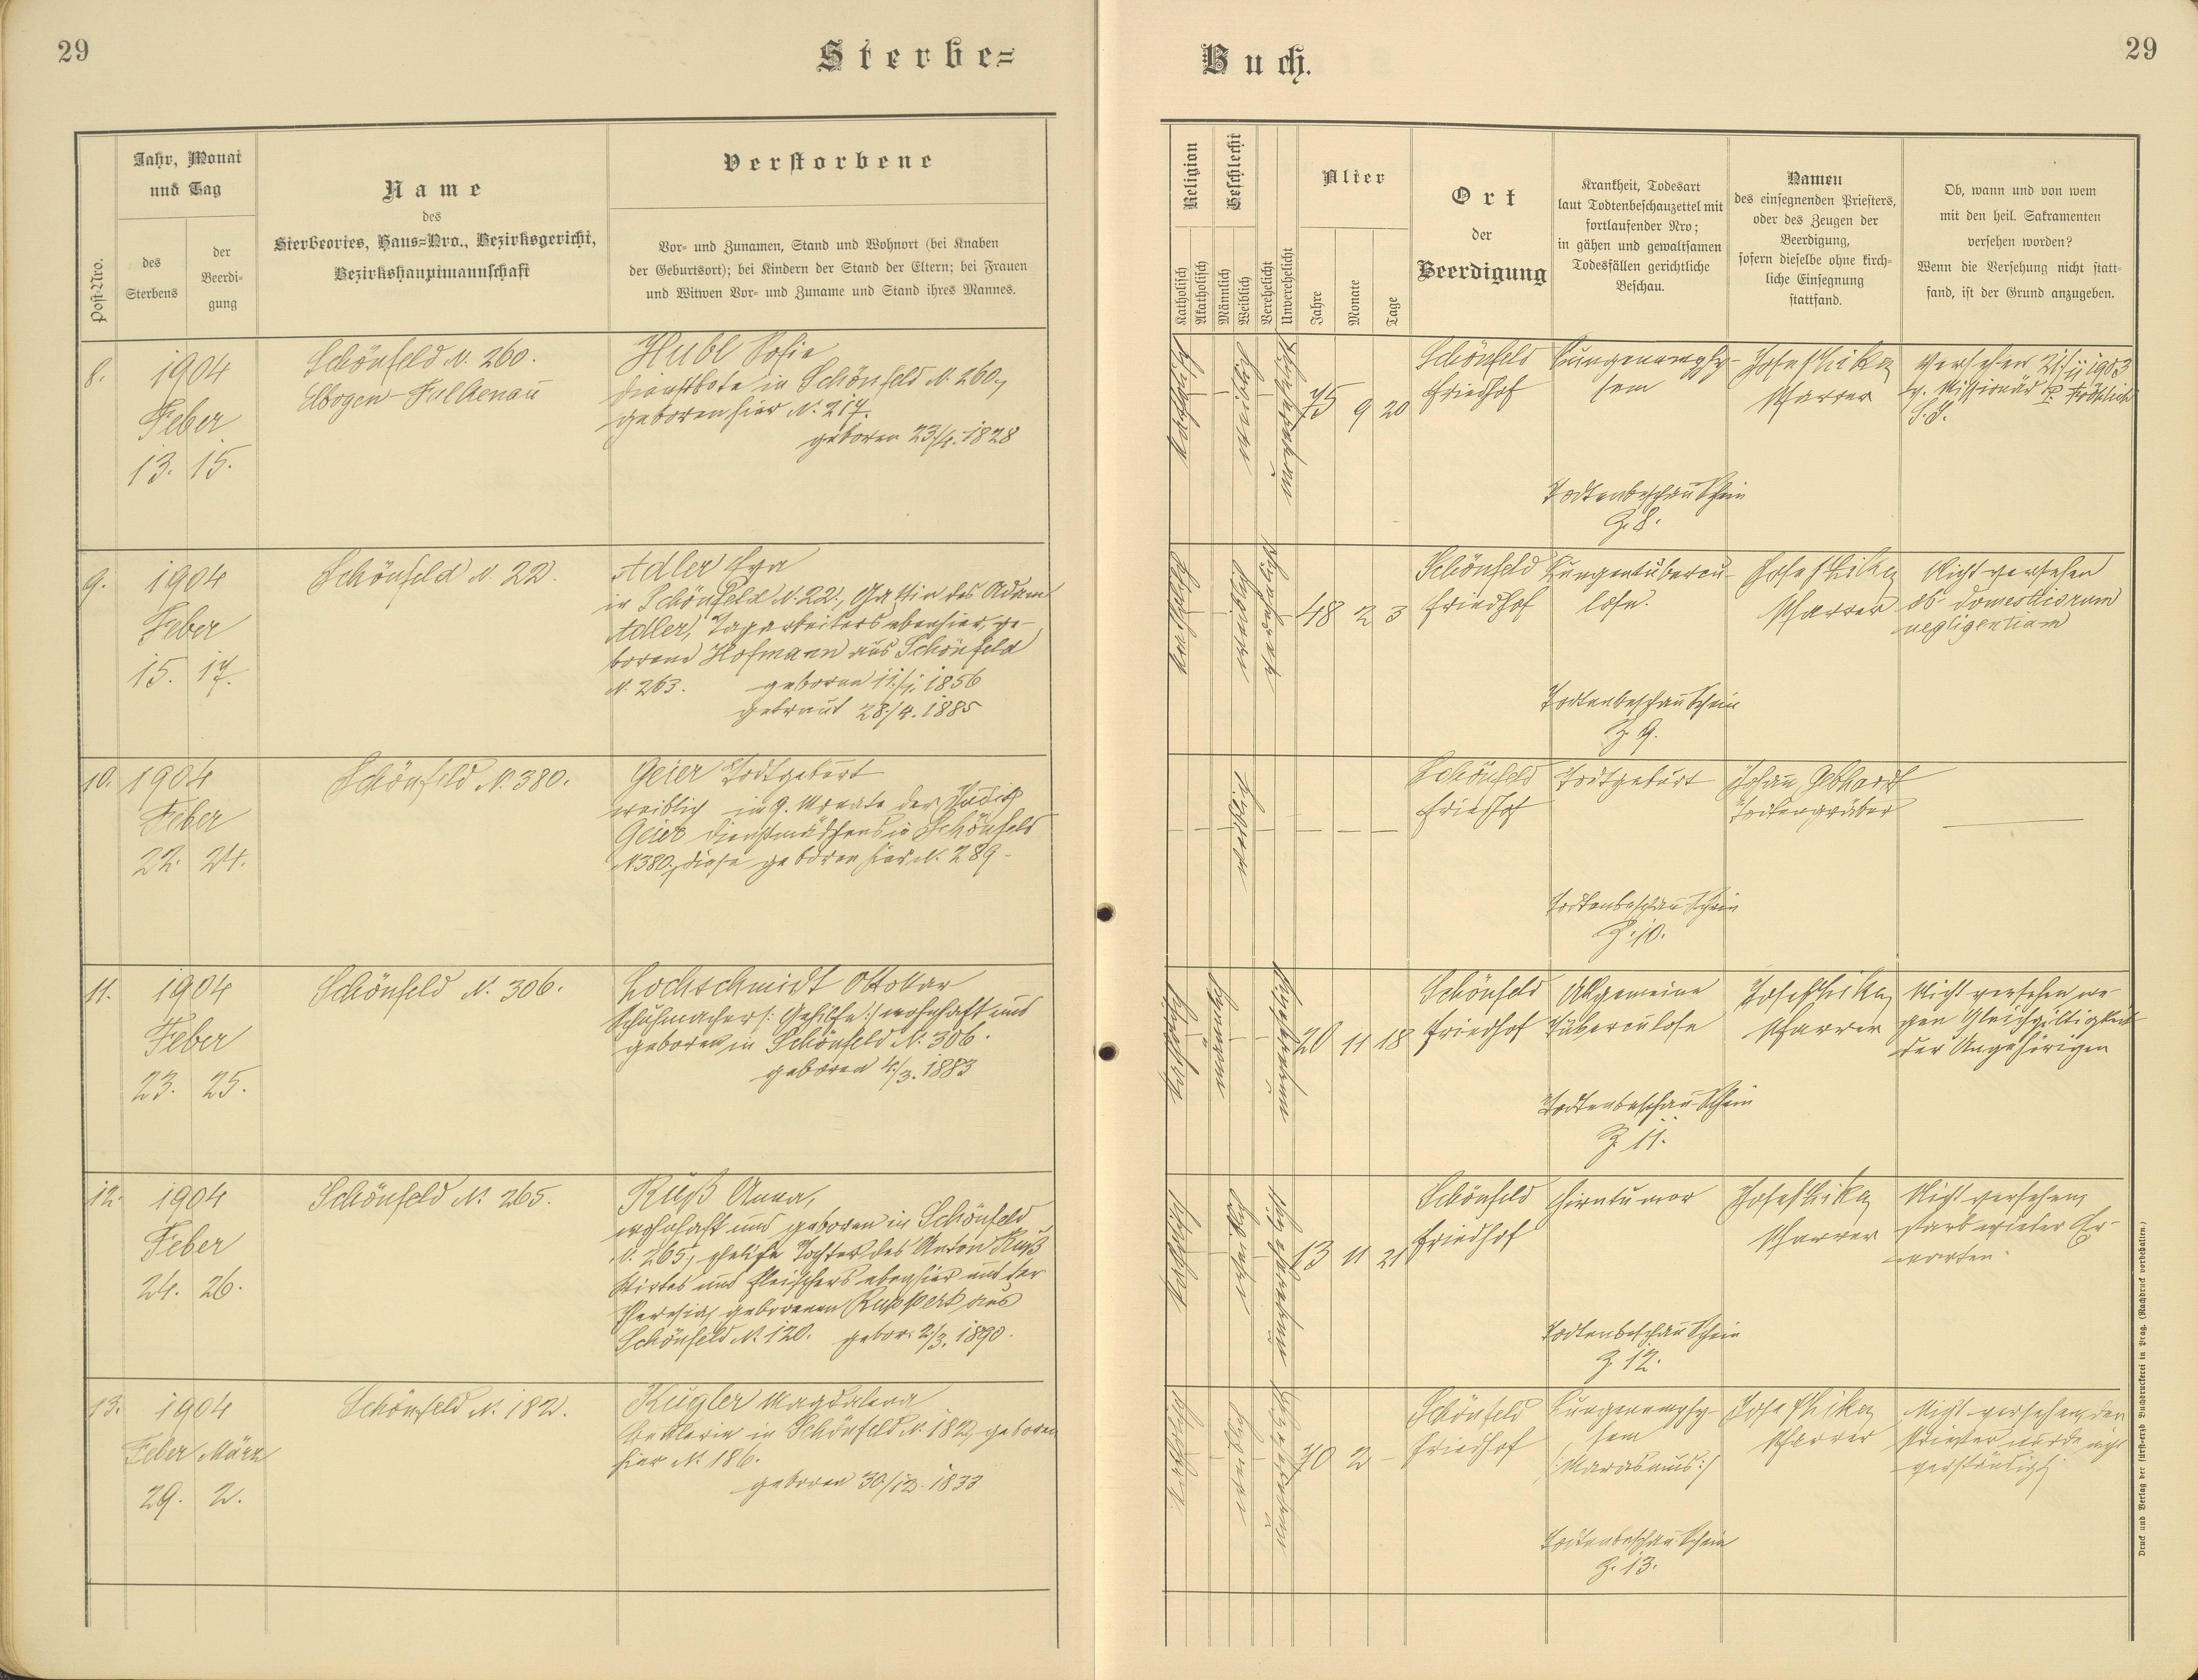 29
Sterbe=
Buch.
29
Post-Nro.
Jahr, Monat
und Tag
des
Sterbens
der
Beerdi-
gung
Name
des
Sterbeortes, Haus-Nro., Bezirksgericht,
Bezirkshauptmannschaft
Verstorbene
Vor- und Zunamen, Stand und Wohnort (bei Knaben
der Geburtsort); bei Kindern der Stand der Eltern; bei Frauen
und Witwen Vor- und Zuname und Stand ihres Mannes.
Religion
Katholisch
Akatholisch
Geschlecht
Männlich
Weiblich
Verehelicht
Unverehelicht
Alter
Jahre
Monate
Tage
Ort
der
Beerdigung
Krankheit, Todesart
laut Todtenbeschauzettel mit
fortlaufender Nro;
in gähen und gewaltsamen
Todesfällen gerichtliche
Beschau.
Namen
des einsegnenden Priesters,
oder des Zeugen der
Beerdigung,
sofern dieselbe ohne kirch-
liche Einsegnung
stattfand.
Ob, wann und von wem
mit den heil. Sakramenten
versehen worden?
Wenn die Versehung nicht statt-
fand, ist der Grund anzugeben.
8.
1904
Feber
13. 15.
Schönfeld N. 260.
Elbogen-Falkenau
Hubl Sofie
Dienstbote in Schönfeld N. 260,
geboren hier N. 217.
geboren 23/4. 1828
katholisch
weiblich
unverehelicht
75 9 20
Schönfeld
Friedhof
Lungenemphy-
sem
Todtenbeschau Schein
Z. 8.
Josef Lika
Pfarrer
Versehen 21/11 1903
v. Missionär P. Fröhlich
S.J.
9.
1904
Feber
15. 17.
Schönfeld N. 22.
Adler Eva
in Schönfeld N. 22, Gattin des Adam
Adler, Tagarbeiters ebenhier, ge-
borene Hofmann aus Schönfeld
N. 263. geboren 11/1. 1856
getraut 28/4. 1885
katholisch
weiblich
verehelicht
48 2 3
Schönfeld
Friedhof
Lungentubercu-
lose.
Todtenbeschau Schein
Z. 9.
Josef Lika
Pfarrer
Nicht versehen
ob domesticorum
negligentiam
10.
1904
Feber
22. 24.
Schönfeld N. 380.
Geier Todtgeburt
weiblich im 9. Monate der
Geier Dienstmädchens in Schönfeld
N. 380, diese geboren hier N. 289.
weiblich
Schönfeld
Friedhof
Todtgeburt
Todtenbeschau-Schein
Z. 10.
Johann Gebhardt
Todtengräber
11.
1904
Feber
23. 25.
Schönfeld N. 306.
Lochschmidt Ottokar
Schuhmacher /: Gehilfe :/ wohnhaft und
geboren in Schönfeld N. 306.
geboren 4/3. 1883
katholisch
männlich
unverehelicht
20 11 18
Schönfeld
Friedhof
Allgemeine
Tuberculose
Todtenbeschau-Schein
Z. 11.
Josef Lika
Pfarrer
Nicht versehen we-
gen Gleichgültigkeit
der Angehörigen
12.
1904
Feber
24. 26.
Schönfeld N. 265.
Ruß Anna,
wohnhaft und geboren in Schönfeld
N. 265, eheliche Tochter des Anton Ruß
Wirtes und Fleischers ebenhier und der
Theresia, geborenen Ruppert aus
Schönfeld N. 120. gebor. 2/3. 1890.
katholisch
weiblich
unverehelicht
13 11 21
Schönfeld
Friedhof
Hirntumor
Todtenbeschau Schein
Z. 12.
Josef Lika
Pfarrer
Nicht versehen,
starb wieder Er-
warten.
13.
1904
Feber März
29. 2.
Schönfeld N. 182.
Kugler Magdalena
Bettlerin in Schönfeld N. 182, geboren
hier N. 186.
geboren 30/12. 1833
katholisch
weiblich
unverehelicht
70 2 -
Schönfeld
Friedhof
Lungenemphy-
sem
/:Marasmus:/
Todtenbeschau Schein
Z. 13.
Josef Lika
Pfarrer
Nicht versehen, der
Priester wurde nicht
verständigt
Druck und Verlag der fürst-erzb Buchdruckerei in Prag. (Nachdruck vorbehalten.)